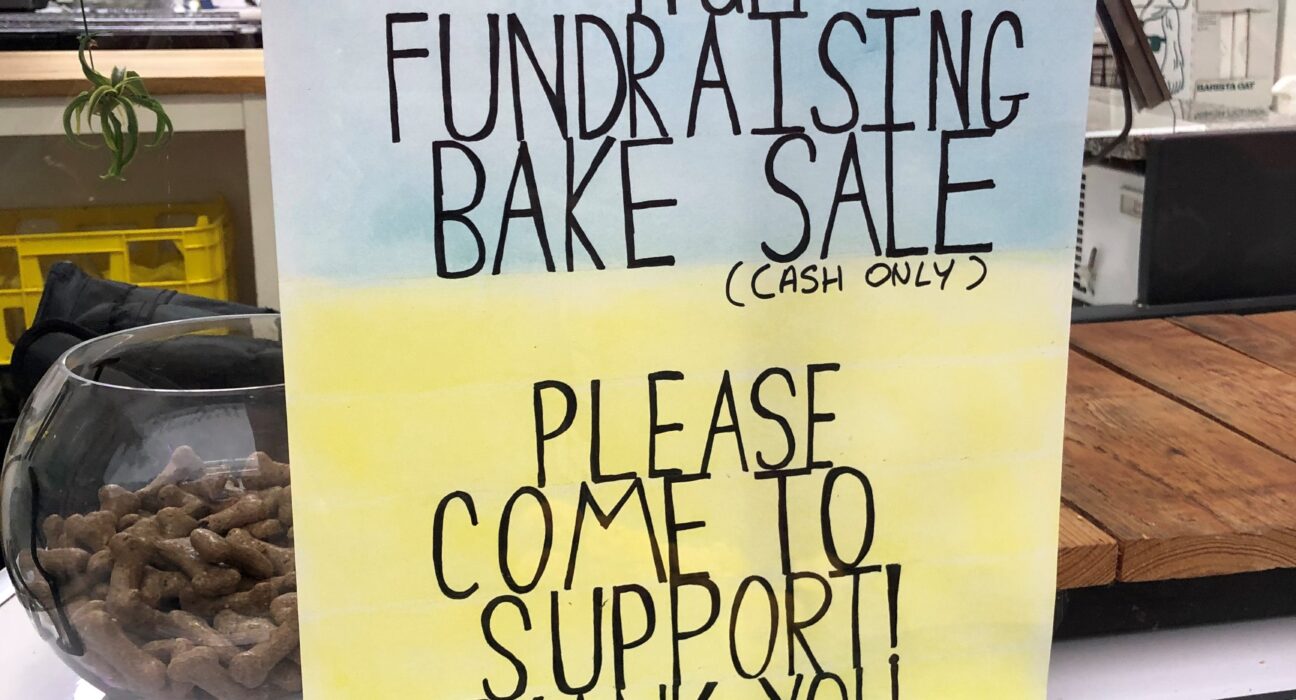 FUNDRAISING
BAKE SALE
(CASH ONLY)
PLEASE
COME TO
SUPPORT!
THANK YOU!
BARISTA OAT